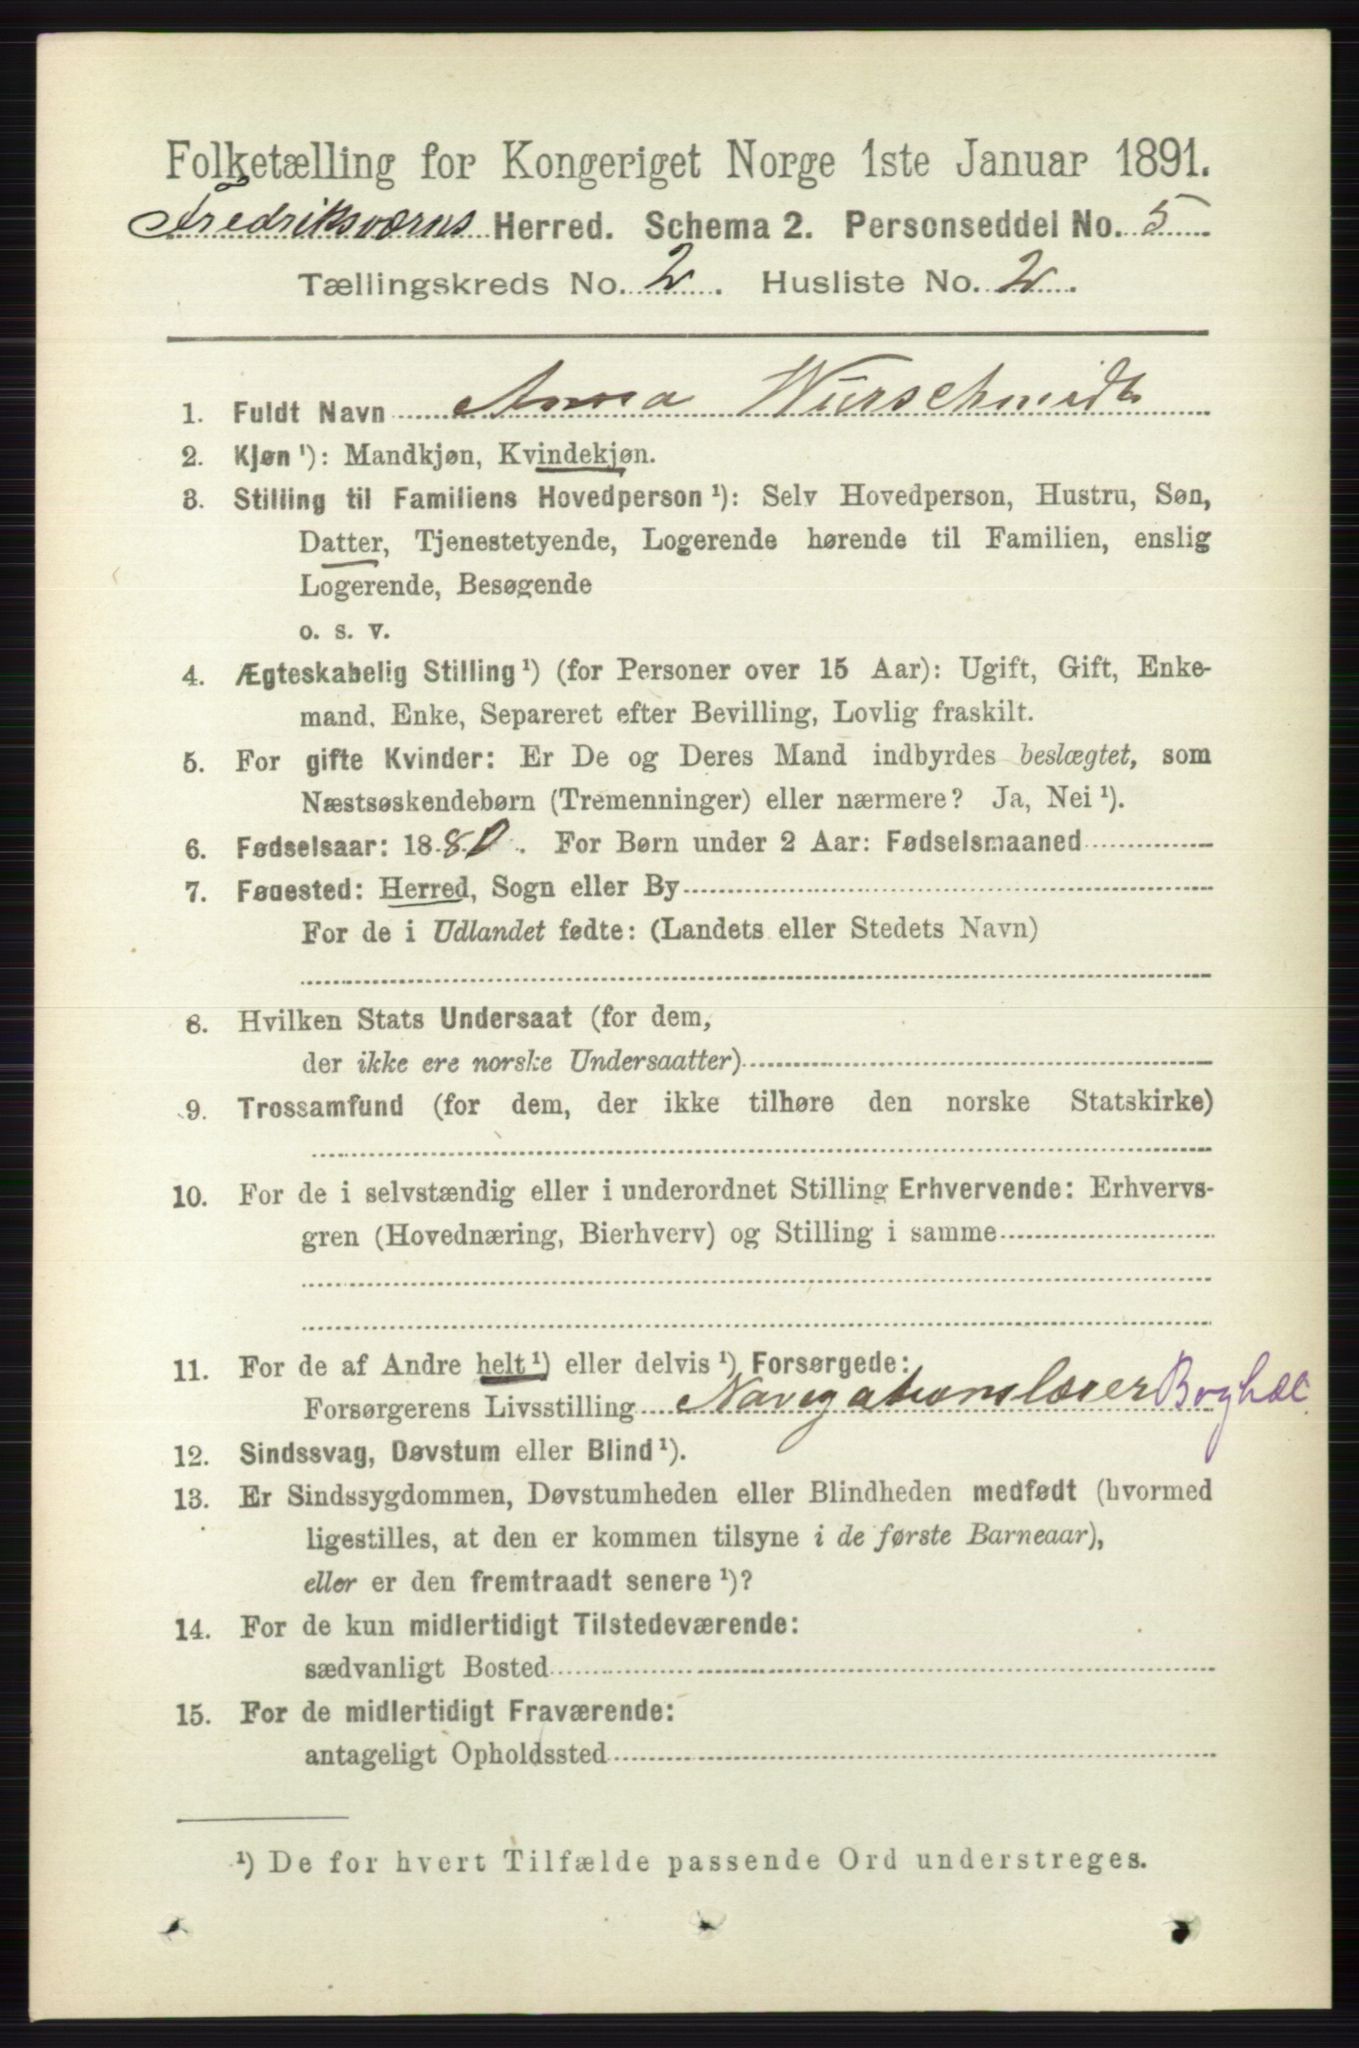 Folketælling for Kongeriget Norge 1ste Januar 1891.
Fredriksværns Herred. Schema 2. Personseddel No. 5
Tællingskreds No. 2. Husliste No. 2.
1. Fuldt Navn Anna Würschmidt
2. Kjøn ¹): Mandkjøn, Kvindekjøn.
3. Stilling til Familiens Hovedperson ¹): Selv Hovedperson, Hustru, Søn,
Datter, Tjenestetyende, Logerende hørende til Familien, enslig
Logerende, Besøgende
o. s. v.
4. Ægteskabelig Stilling ¹) (for Personer over 15 Aar): Ugift, Gift, Enke-
mand, Enke, Separeret efter Bevilling, Lovlig fraskilt.
5. For gifte Kvinder: Er De og Deres Mand indbyrdes beslægtet, som
Næstsøskendebørn (Tremenninger) eller nærmere? Ja, Nei ¹).
6. Fødselsaar: 1880. For Børn under 2 Aar: Fødselsmaaned
7. Føuested: Herred, Sogn eller By
For de i Udlandet fødte: (Landets eller Stedets Navn)
8. Hvilken Stats Undersaat (for dem,
der ikke ere norske Undersaatter)
9. Trossamfund (for dem, der ikke tilhøre den norske Statskirke)
10. For de i selvstændig eller i underordnet Stilling Erhvervende: Erhvervs-
gren (Hovednæring, Bierhverv) og Stilling i samme
11. For de af Andre helt ¹) eller delvis ¹) Forsørgede:
Forsørgerens Livsstilling Navigationslærer
12. Sindssvag, Døvstum eller Blind ¹).
13. Er Sindssygdommen, Døvstumheden eller Blindheden medfødt (hvormed
ligestilles, at den er kommen tilsyne i de første Barneaar),
eller er den fremtraadt senere ¹)?
14. For de kun midlertidigt Tilstedeværende:
sædvanligt Bosted
15. For de midlertidigt Fraværende:
antageligt Opholdssted
¹) De for hvert Tilfælde passende Ord understreges.